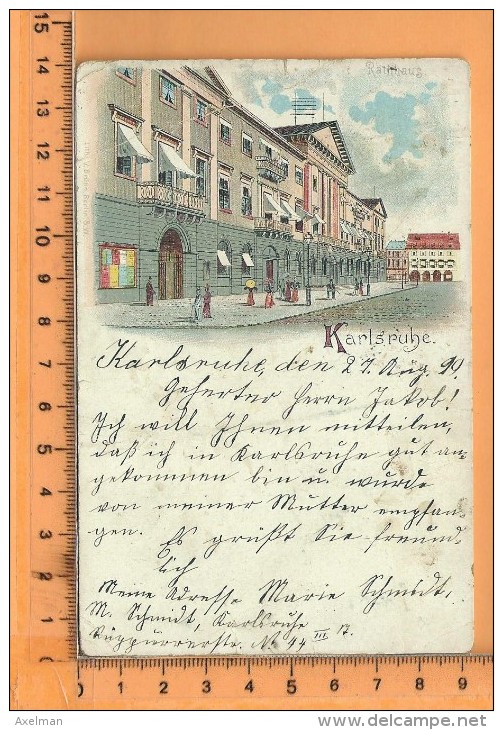 Rathhaus
Karlsruhe.
Karlsruhe, den 27. Aug. 99.
Geherter Herrn Jakob!
Ich will Ihnen mitteilen,
daß ich in Karlsruhe gut an-
gekommen bin u. wurde
von meiner Mutter empfan-
gen. Es grüßt Sie freund-
lich
Meine Adresse Marie Schmidt,
M. Schmidt, Karlsruhe
Rüppurrerstr. N. 44 III
15
14
13
12
11
10
9
8
7
6
5
4
3
2
1
0
0 1 2 3 4 5 6 7 8 9
Axelman
www.delcampe.net